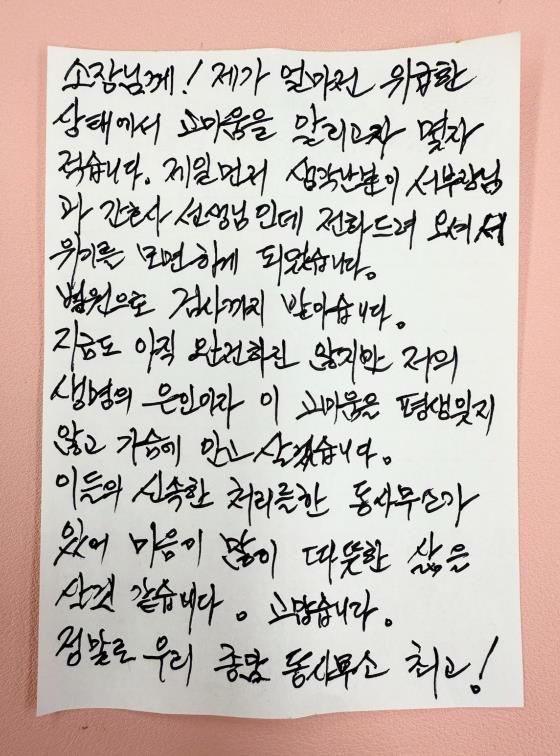 소장님께! 제가 얼마전 위급한
상태에서 고마움을 알리고자 몇자
적습니다. 제일먼저 생각난분이 서부장님
과 간호사 선생님인데 전화드려 오셔서
위기를 모면하게 되었습니다.
병원으로 검사까지 받아습니다.
지금도 아직 완전하린 않지만 저의
생명의 은인이라 이 고마움을 평생잊지
않고 가슴에 안고 살겠습니다.
이들의 신속한 처리를한 동사무소가
있어 마음이 많이 따뜻한 삶을
산것 같습니다. 고맙습니다.
정말로 우리 종암 동사무소 최고!